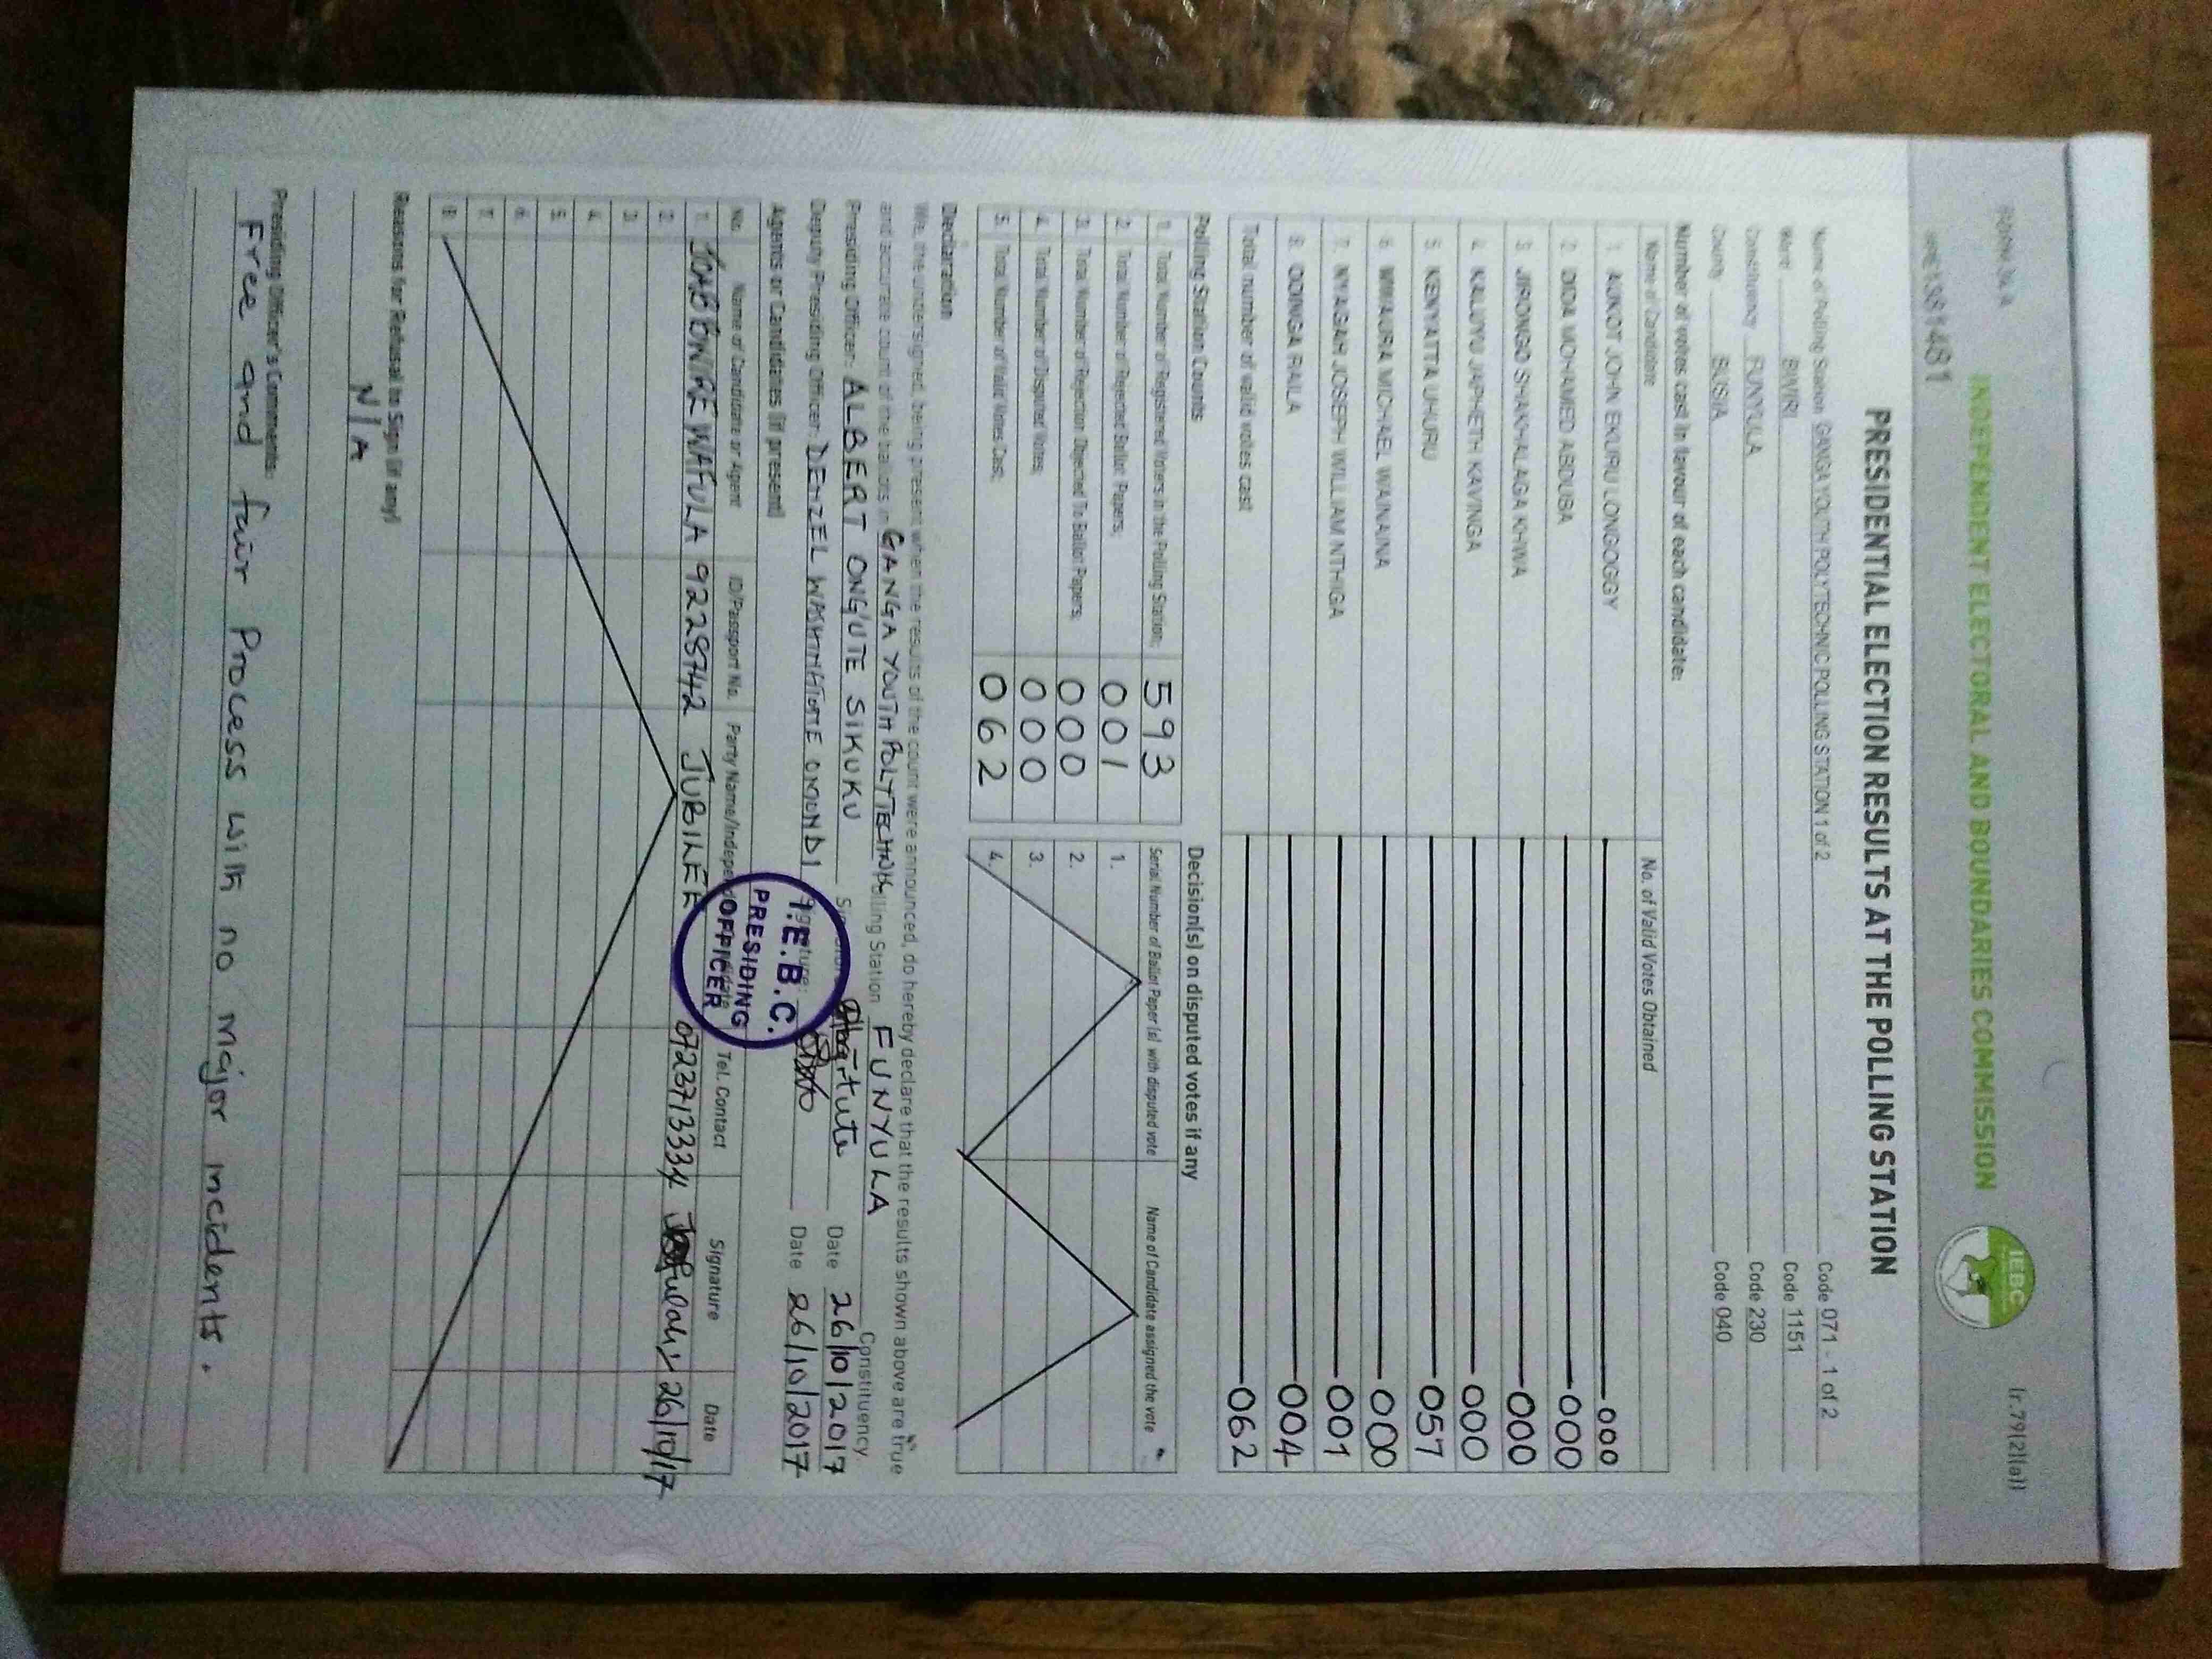 FORM 34 A
(r.79(2)(a))
INDEPENDENT ELECTORAL AND BOUNDARIES COMMISSION
IEBC
1381481
PRESIDENTIAL ELECTION RESULTS AT THE POLLING STATION
Name of Polling Station GANGA YOUTH POLYTECHNIC POLLING STATION 1 of 2 Code 071 - 1 of 2
Ward BWIRI Code 1151
Constituency FUNYULA Code 230
County BUSIA Code 040
Number of votes cast in favour of each candidate:
Name of Candidate No. of Valid Votes Obtained
1. AUKOT JOHN EKURU LONGOGGY 000
2. DIDA MOHAMED ABDUBA 000
3. JIRONGO SHAKHALAGA KHWA 000
4. KALUYU JAPHETH KAVINGA 000
5. KENYATTA UHURU 057
6. MWAURA MICHAEL WAINAINA 000
7. NYAGAH JOSEPH WILLIAM NTHIGA 001
8. ODINGA RAILA 004
Total number of valid votes cast 062
Polling Station Counts
1. Total Number of Registered Voters in the Polling Station: 593
2. Total Number of Rejected Ballot Papers: 001
3. Total Number of Rejection Objected To Ballot Papers: 000
4. Total Number of Disputed Votes: 000
5. Total Number of Valid Votes Cast: 062
Decision(s) on disputed votes if any
Serial Number of Ballot Paper (s) with disputed vote Name of Candidate assigned the vote
1.
2.
3.
4.
Declaration
We, the undersigned, being present when the results of the count were announced, do hereby declare that the results shown above are true
and accurate count of the ballots in GANGA YOUTH POLYTECHNIC Polling Station FUNYULA Constituency
Presiding Officer: ALBERT ONG'UTE SIKUKU Date 26/10/2017
Deputy Presiding Officer: DENZEL ONDUNDI Signature: Date 26/10/2017
I.E.B.C.
PRESIDING
OFFICER
Agents or Candidates (if present)
No. Name of Candidate or Agent ID/Passport No. Party Name/Independent Candidate Tel. Contact Signature Date
1. WAFULA 9228742 JUBILEE 0723713334 26/10/17
2.
3.
4.
5.
6.
7.
8.
Reasons for Refusal to Sign (if any)
N/A
Presiding Officer's Comments:
Free and fair Process with no major incidents.